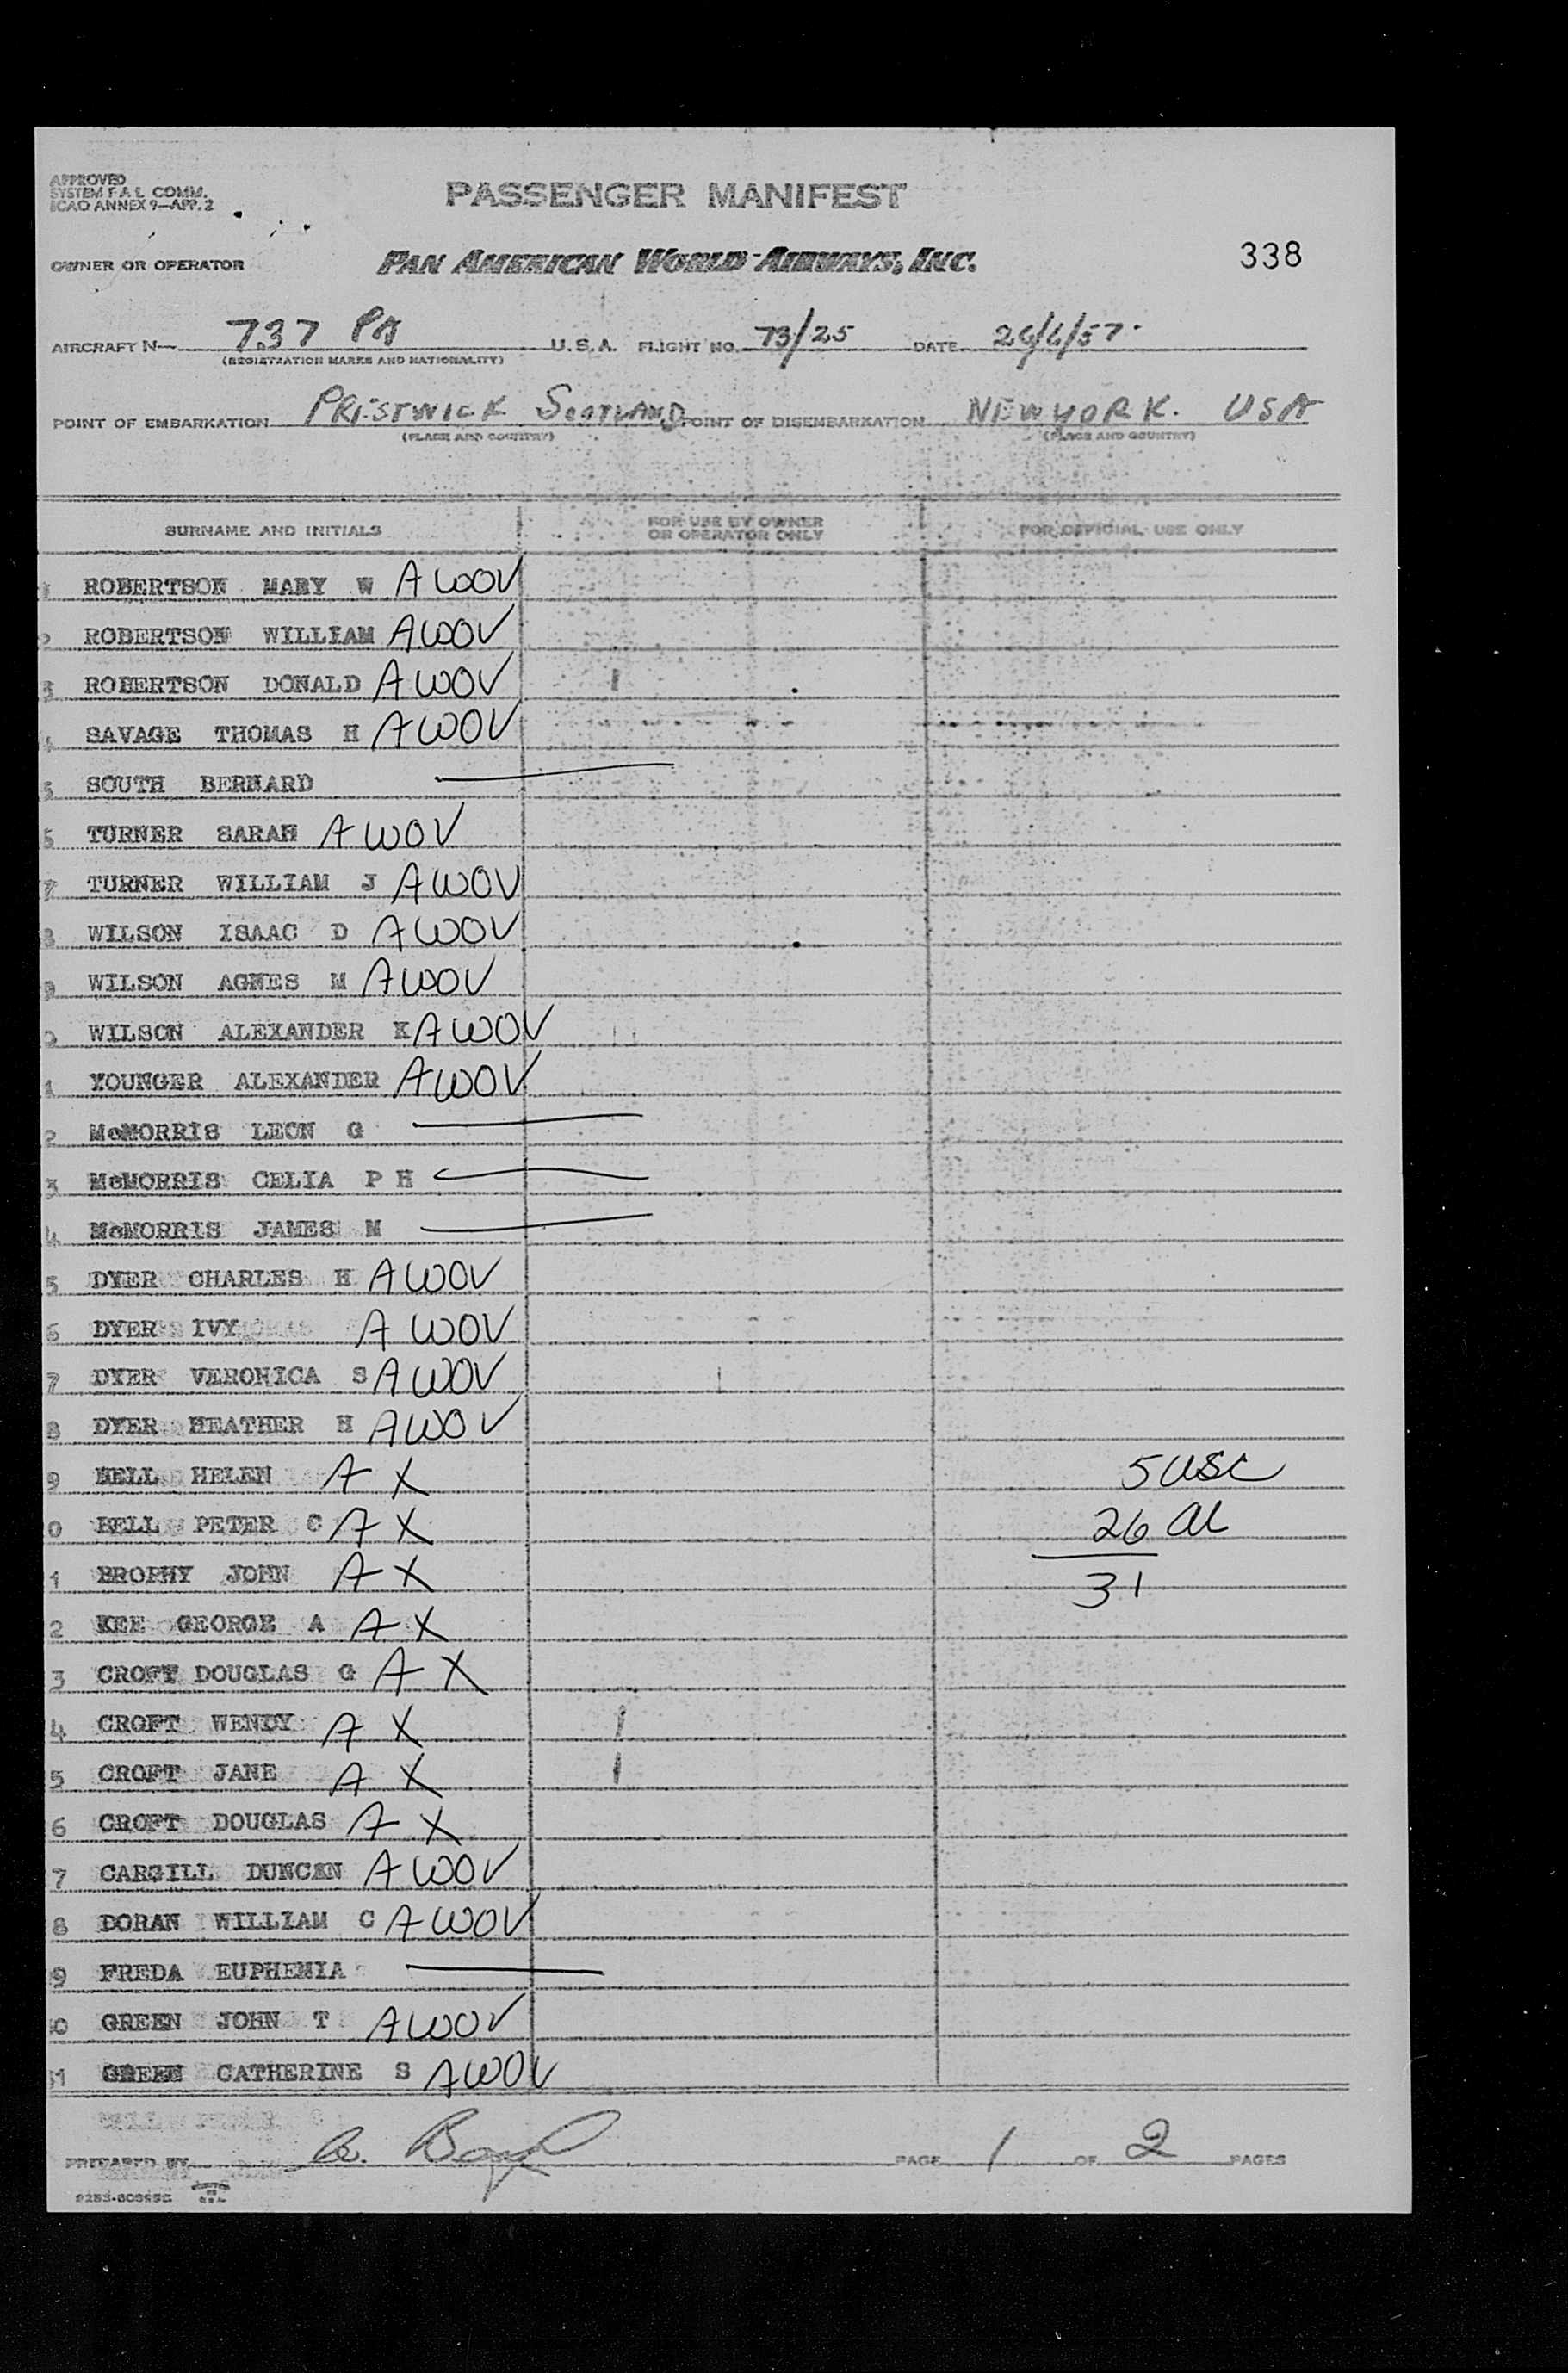 APPROVED
SYSTEM F.A.L. COMM.
ICAO ANNEX 9—APP. 2
PASSENGER MANIFEST
OWNER OR OPERATOR PAN AMERICAN WORLD AIRWAYS, INC. 338
AIRCRAFT N— 737 PA U.S.A. FLIGHT NO. 73/25 DATE 26/6/57.
(REGISTRATION MARKS AND NATIONALITY)
POINT OF EMBARKATION PRESTWICK SCOTLAND POINT OF DISEMBARKATION NEW YORK. USA
(PLACE AND COUNTRY) (PLACE AND COUNTRY)
SURNAME AND INITIALS FOR USE BY OWNER OR OPERATOR ONLY FOR OFFICIAL USE ONLY
1 ROBERTSON MARY W A WOV
2 ROBERTSON WILLIAM A WOV
3 ROBERTSON DONALD A WOV
4 SAVAGE THOMAS H A WOV
5 SOUTH BERNARD
6 TURNER SARAH A WOV
7 TURNER WILLIAM J A WOV
8 WILSON ISAAC D A WOV
9 WILSON AGNES M A WOV
0 WILSON ALEXANDER K A WOV
1 YOUNGER ALEXANDER A WOV
2 McMORRIS LEON G
3 McMORRIS CELIA P H
4 McMORRIS JAMES M
5 DYER CHARLES H A WOV
6 DYER IVY A WOV
7 DYER VERONICA S A WOV
8 DYER HEATHER H A WOV
9 BELL HELEN A X 5 USC
0 BELL PETER C A X 26 al
1 BROPHY JOHN A X 31
2 KEE GEORGE A A X
3 CROFT DOUGLAS G A X
4 CROFT WENDY A X
5 CROFT JANE A X
6 CROFT DOUGLAS A X
7 CARGILL DUNCAN A WOV
8 DORAN WILLIAM C A WOV
9 FREDA EUPHEMIA
30 GREEN JOHN T A WOV
31 GREEN CATHERINE S A WOV
PREPARED BY PAGE 1 OF 2 PAGES